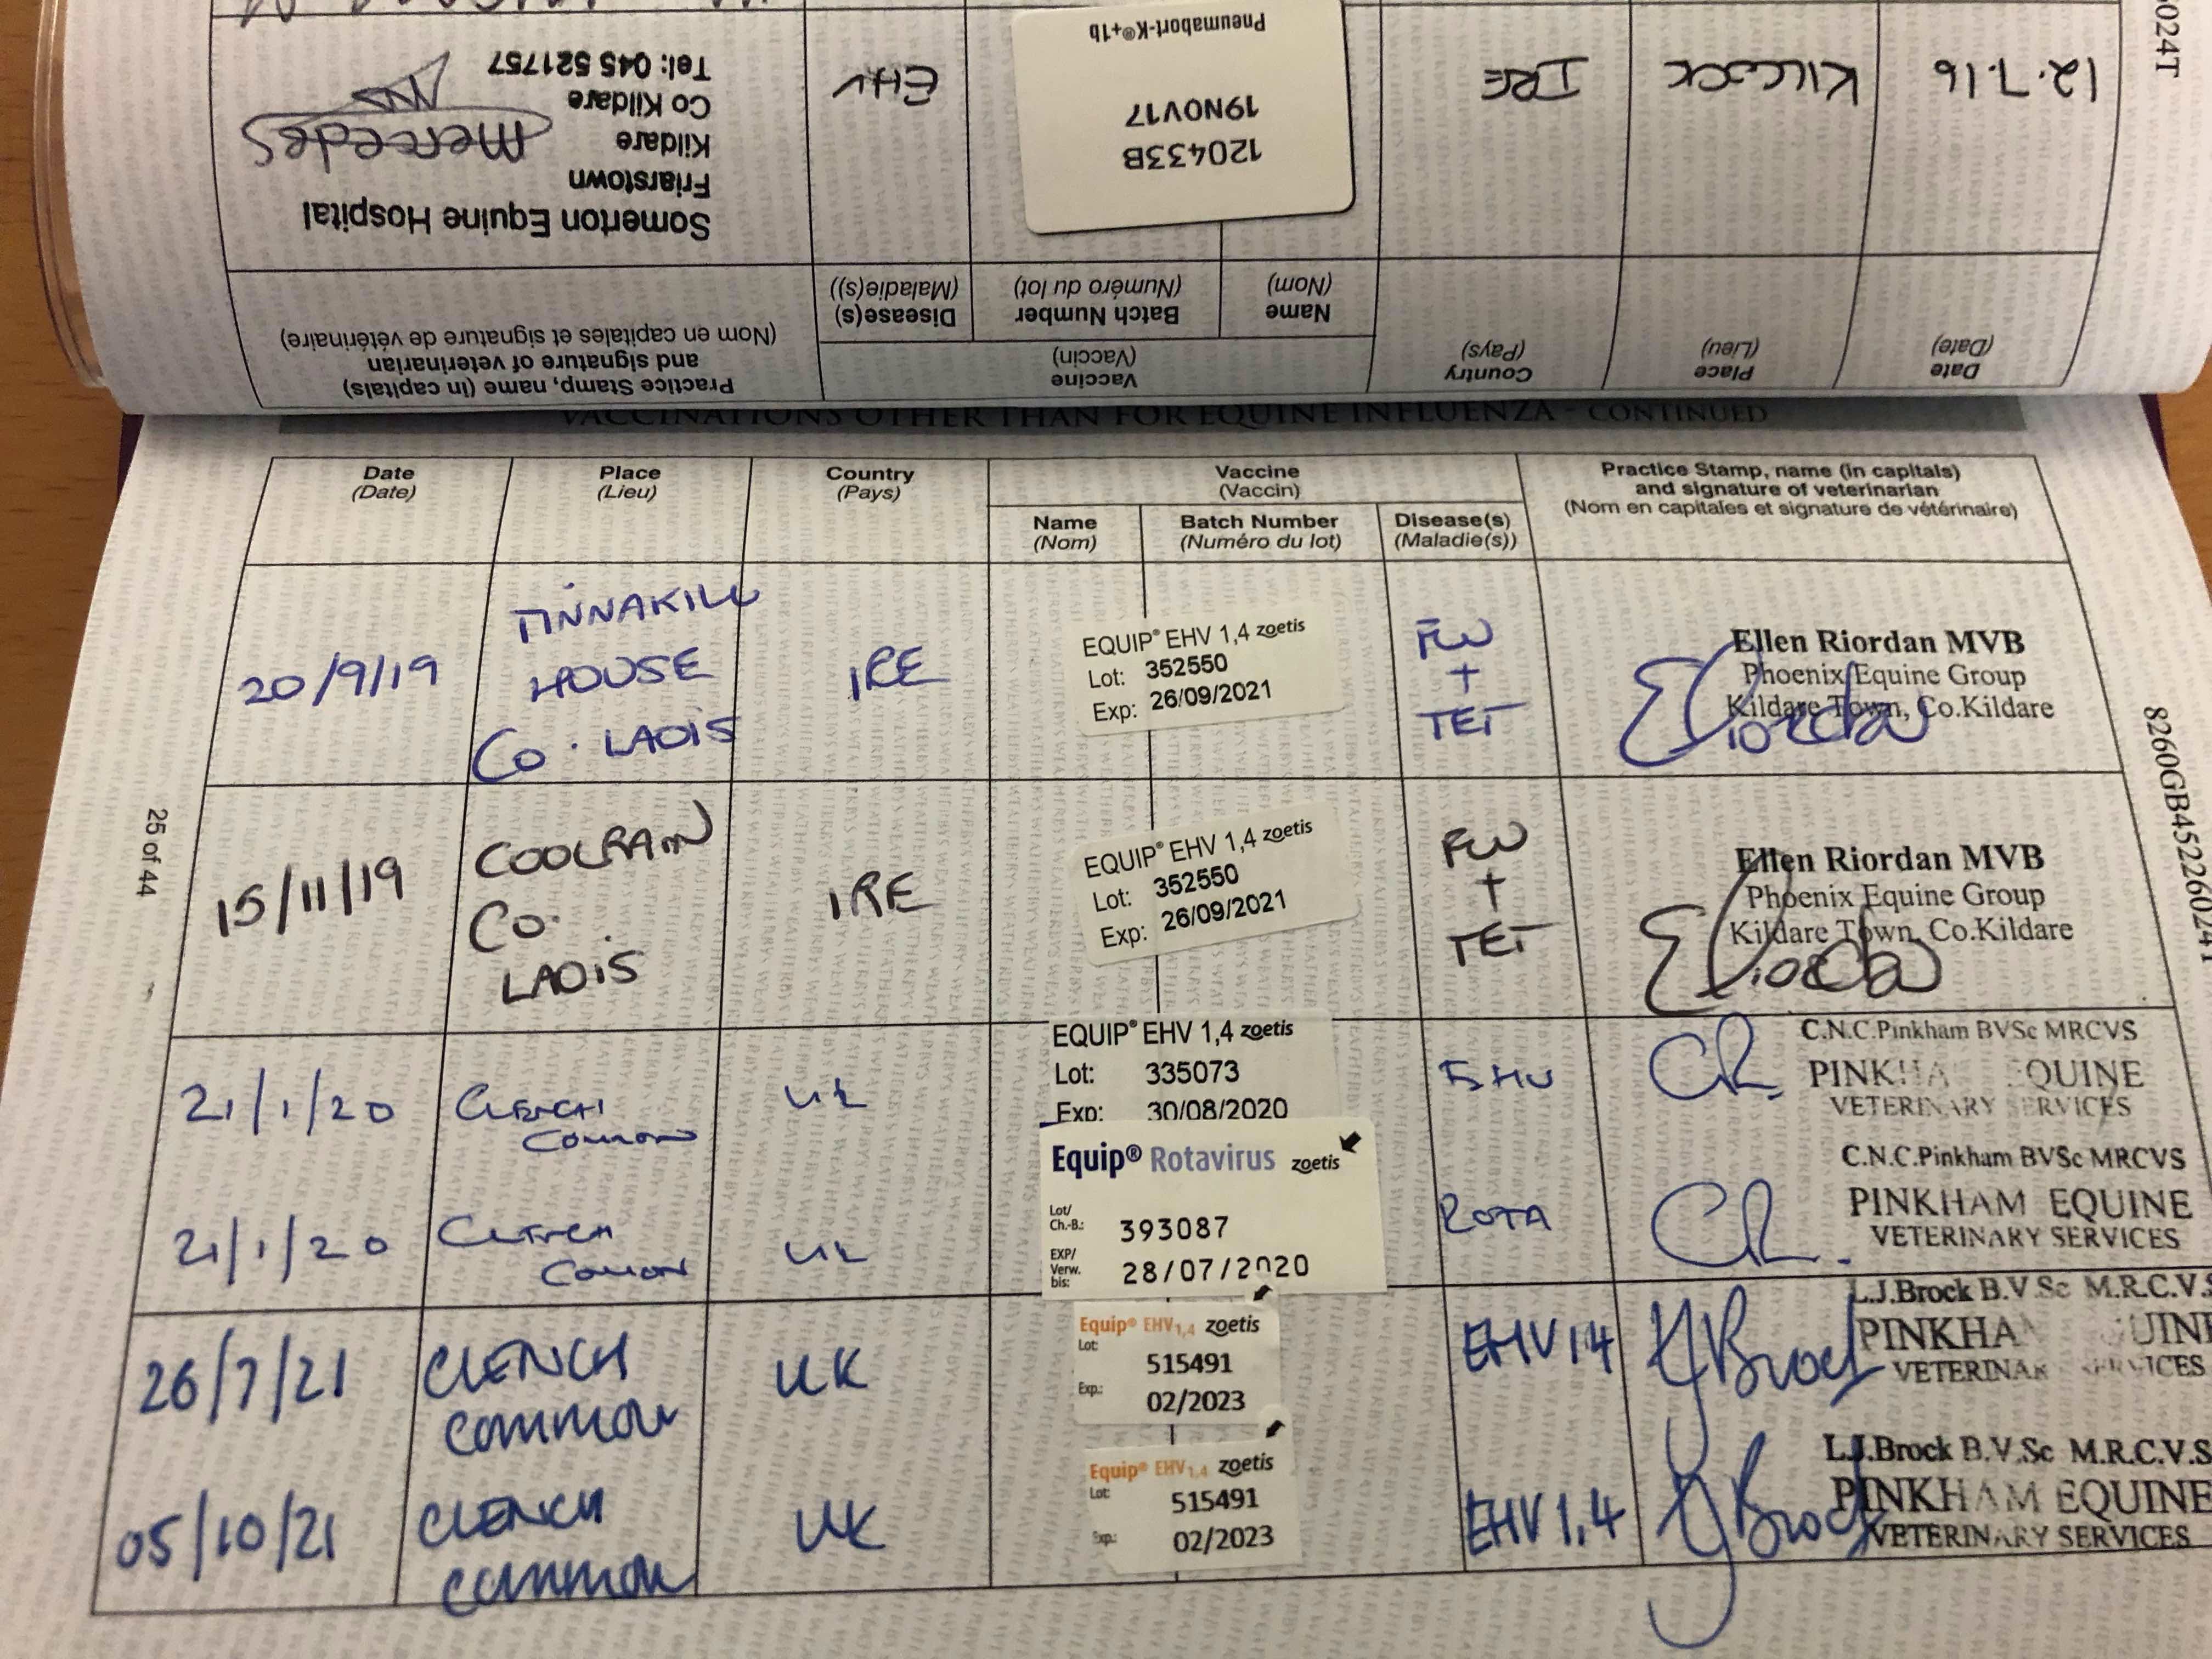 6024T
12.7.16
KILCOCK
IRE
120433B
19NOV17
Pneumabort-K®+1b
EHV
Somerton Equine Hospital
Friarstown
Kildare
Co Kildare
Tel: 045 521757
mercedes
Date
(Date)
Place
(Lieu)
Country
(Pays)
Vaccine
(Vaccin)
Name
(Nom)
Batch Number
(Numéro du lot)
Disease(s)
(Maladie(s))
Practice Stamp, name (in capitals)
and signature of veterinarian
(Nom en capitales et signature de vétérinaire)
VACCINATIONS OTHER THAN FOR EQUINE INFLUENZA - CONTINUED
Date
(Date)
Place
(Lieu)
Country
(Pays)
Vaccine
(Vaccin)
Name
(Nom)
Batch Number
(Numéro du lot)
Disease(s)
(Maladie(s))
Practice Stamp, name (in capitals)
and signature of veterinarian
(Nom en capitales et signature de vétérinaire)
20/9/19
TINNAKILL
HOUSE
Co. LAOIS
IRE
EQUIP® EHV 1,4 zoetis
Lot: 352550
Exp: 26/09/2021
FLU
+
TET
Ellen Riordan MVB
Phoenix Equine Group
Kildare Town, Co.Kildare
15/11/19
COOLRAIN
Co.
LAOIS
IRE
EQUIP® EHV 1,4 zoetis
Lot: 352550
Exp: 26/09/2021
FLU
+
TET
Ellen Riordan MVB
Phoenix Equine Group
Kildare Town, Co.Kildare
21/1/20
CLENCH
COMMON
UK
EQUIP® EHV 1,4 zoetis
Lot: 335073
Exp: 30/08/2020
EHV
C.N.C.Pinkham BVSc MRCVS
PINKHAM EQUINE
VETERINARY SERVICES
21/1/20
CLENCH
COMMON
UK
Equip® Rotavirus zoetis
Lot/
Ch.-B.: 393087
EXP/
Verw.
bis: 28/07/2020
ROTA
C.N.C.Pinkham BVSc MRCVS
PINKHAM EQUINE
VETERINARY SERVICES
26/7/21
CLENCH
COMMON
UK
Equip® EHV1,4 zoetis
Lot:
515491
Exp.:
02/2023
EHV 14
L.J.Brock B.V.Sc M.R.C.V.S
PINKHAM EQUINE
VETERINARY SERVICES
05/10/21
CLENCH
COMMON
UK
Equip® EHV1,4 zoetis
Lot:
515491
Exp.:
02/2023
EHV 1,4
L.J.Brock B.V.Sc M.R.C.V.S
PINKHAM EQUINE
VETERINARY SERVICES
25 of 44
8260GB45226024T